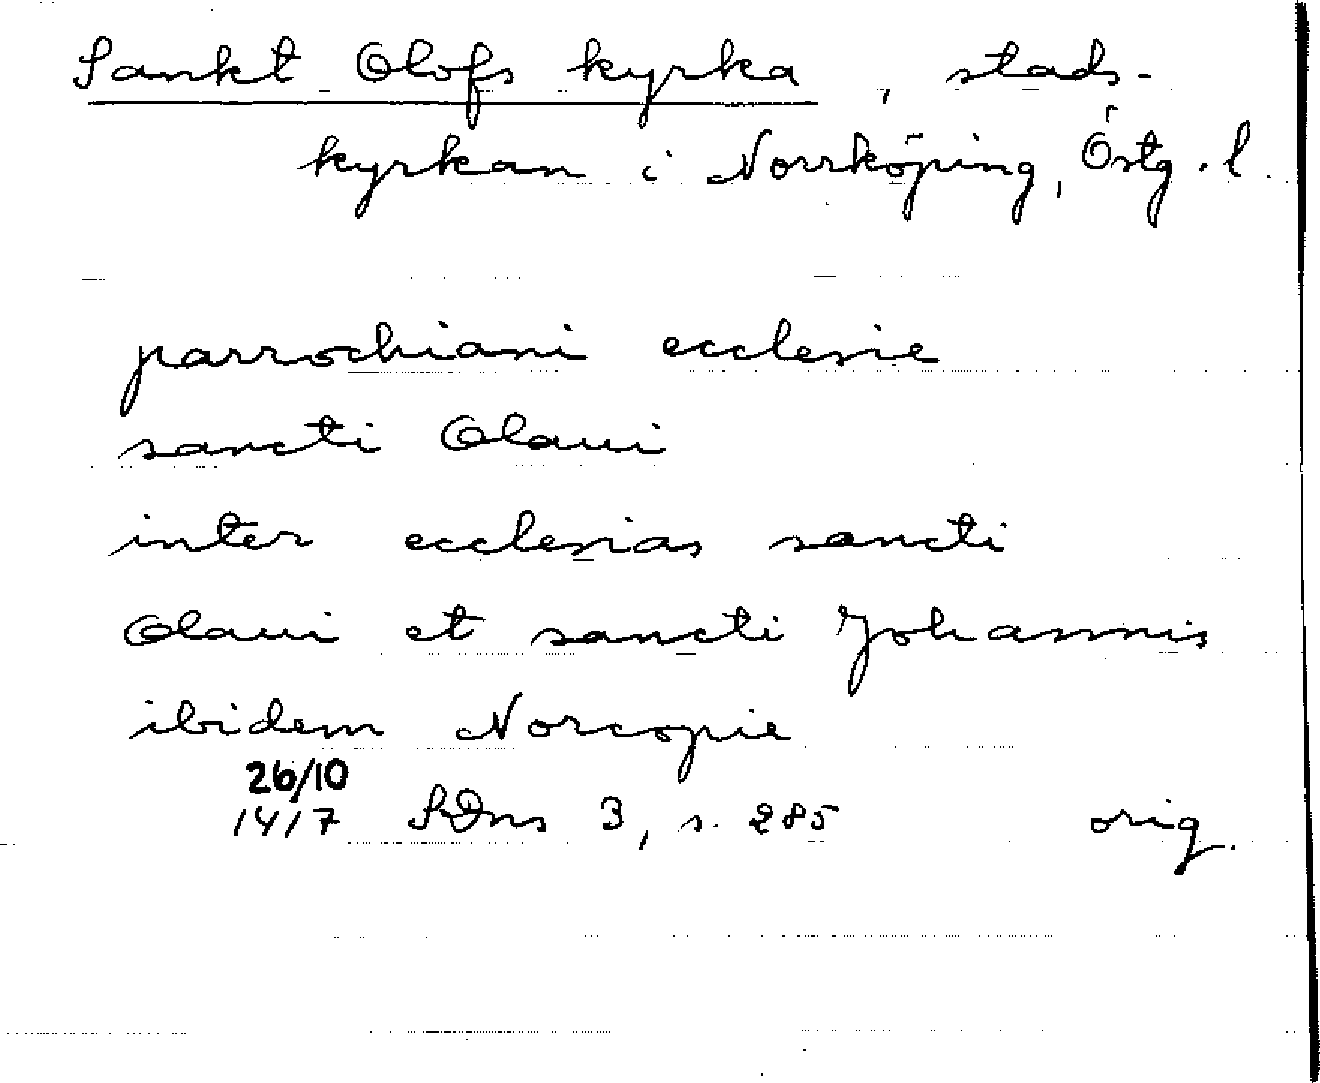 Sankt Olofs kyrka, stads-
kyrkan i Norrköping, Östg. l.
parrochiani ecclesie
sancti Olaui
inter ecclesias sancti
Olaui et sancti Johannis
ibidem Norcopie
26/10
1417 SDns 3, s. 285 orig.